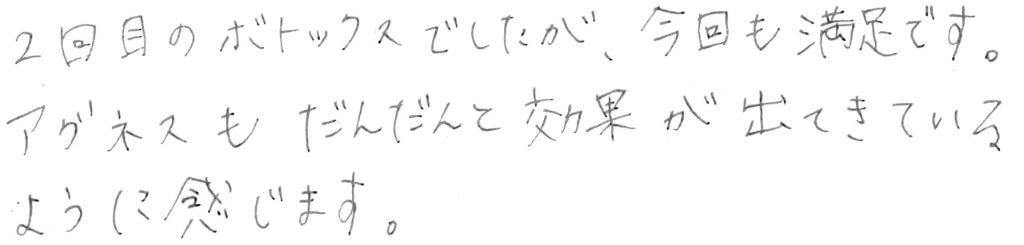 2回目のボトックスでしたが、今回も満足です。
アグネスもだんだんと効果が出てきている
ように感じます。